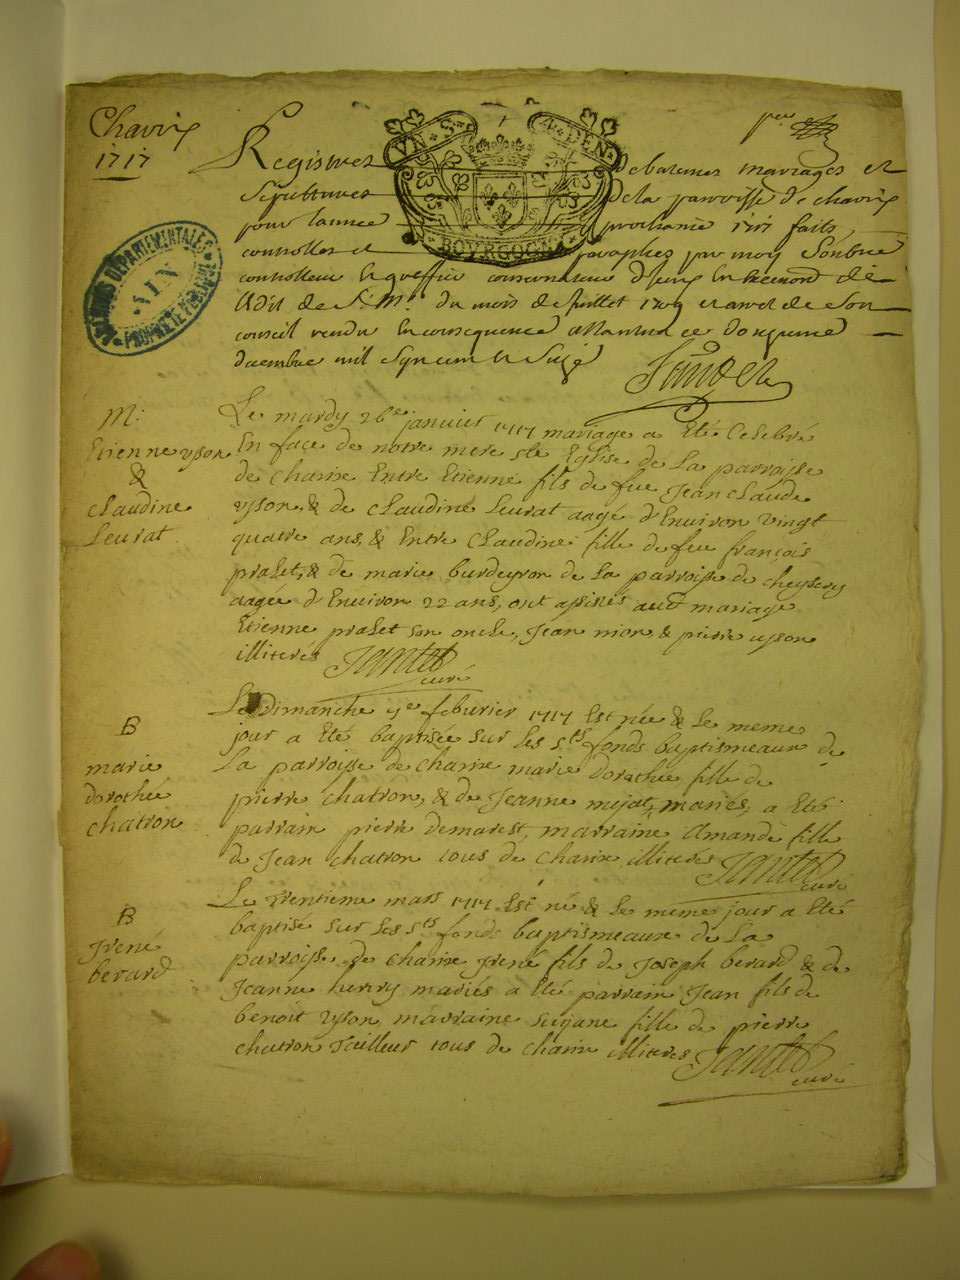 Chavix
1717
pre
VN S 4 DEN
BOURGOGNE
ARCHIVES DEPARTEMENTALES
AIN
PROPRIETE PUBLIQUE
Registres de batemes mariages et
sepultures de la parroisse de chavix
pour lannee prochaine 1717 faits,
controlles et paraphes par moy Soubne
controlleur en
Edit de Sa Mte du mois de Juillet 1709 et arret de Son
conseil rendu en consequence attantiré ce douzieme
decembre mil Sept cent et Seize
M:
Etienne yson
&
Claudine
Leurat
Le mardy 26e janvier 1717 mariage a Eté Celebré
En face de notre mere ste Eglise de La parroisse
de Charix Entre Etienne fils de feu Jean Claude
yson, & de Claudine Leurat aagé d'Environ vingt
quatre ans, & Entre Claudine fille de feu françois
pralet, & de marie burdeyron de La parroisse de cheysery
aagee d'Environ 22 ans, ont assistés audt mariage
Etienne pralet son oncle, Jean nion, & pierre yson
illiteres Jantet
curé
B
marie
dorothée
chatron
Le Dimanche 7e feburier 1717 Est née & Le meme
jour a Eté baptisée sur Les sts fonds baptismeaux de
La parroisse de Charix marie dorothée fille de
pierre chatron, & de Jeanne mijat, mariés, a Eté
parrain pierre demarest, marraine Amande fille
de Jean chatron tous de Charix illiterés Jantet
curé
B
Jrené
berard
Le trentieme mars 1717 Est né & Le même jour a Eté
baptisé sur Les sts fonds baptismeaux de La
parroisse de Charix Jrené fils de Joseph berard & de
Jeanne henry mariés a Eté parrain Jean fils de
benoit yson, marraine Susane fille de pierre
chatron Tailleur tous de Charix illiterés Jantet
curé